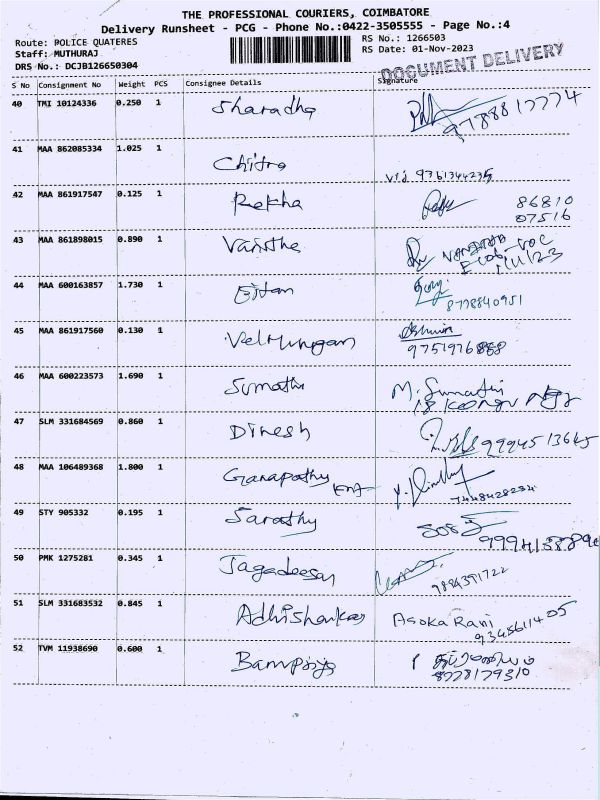 THE PROFESSIONAL COURIERS, COIMBATORE
Delivery Runsheet - PCG - Phone No.:0422-3505555 - Page No.:4
Route: POLICE QUATERES RS No.: 1266503
Staff: MUTHURAJ RS Date: 01-Nov-2023
DRS No.: DCJB126650304 DOCUMENT DELIVERY
S No Consignment No Weight PCS Consignee Details Signature
40 TMI 10124336 0.250 1 Sharadha
9788817774
41 MAA 862085334 1.025 1
Chitra
42 MAA 861917547 0.125 1 Rekha 86810
07516
43 MAA 861898015 0.890 1
44 MAA 600163857 1.730 1
8778840951
45 MAA 861917560 0.130 1 Velmurugan
46 MAA 600223573 1.690 1 Sumathi M. Sumathi
47 SLM 331684569 0.860 1 Dinesh 9994513645
48 MAA 106489368 1.800 1 Ganapathy
49 STY 905332 0.195 1 Sarathy
50 PMK 1275281 0.345 1 Jagadeesan
51 SLM 331683532 0.845 1 Adhishankar Asoka Rani
9345611405
52 TVM 11938690 0.600 1
8778179310